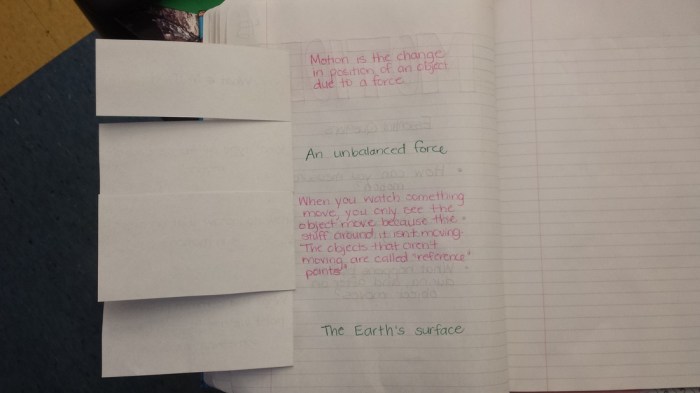 Motion is the change
in position of an object
due to a force.
An unbalanced force
When you watch something
move, you only see the
object move because the
stuff around it isn't moving.
The objects that aren't
moving are called "reference
points"
The Earth's surface